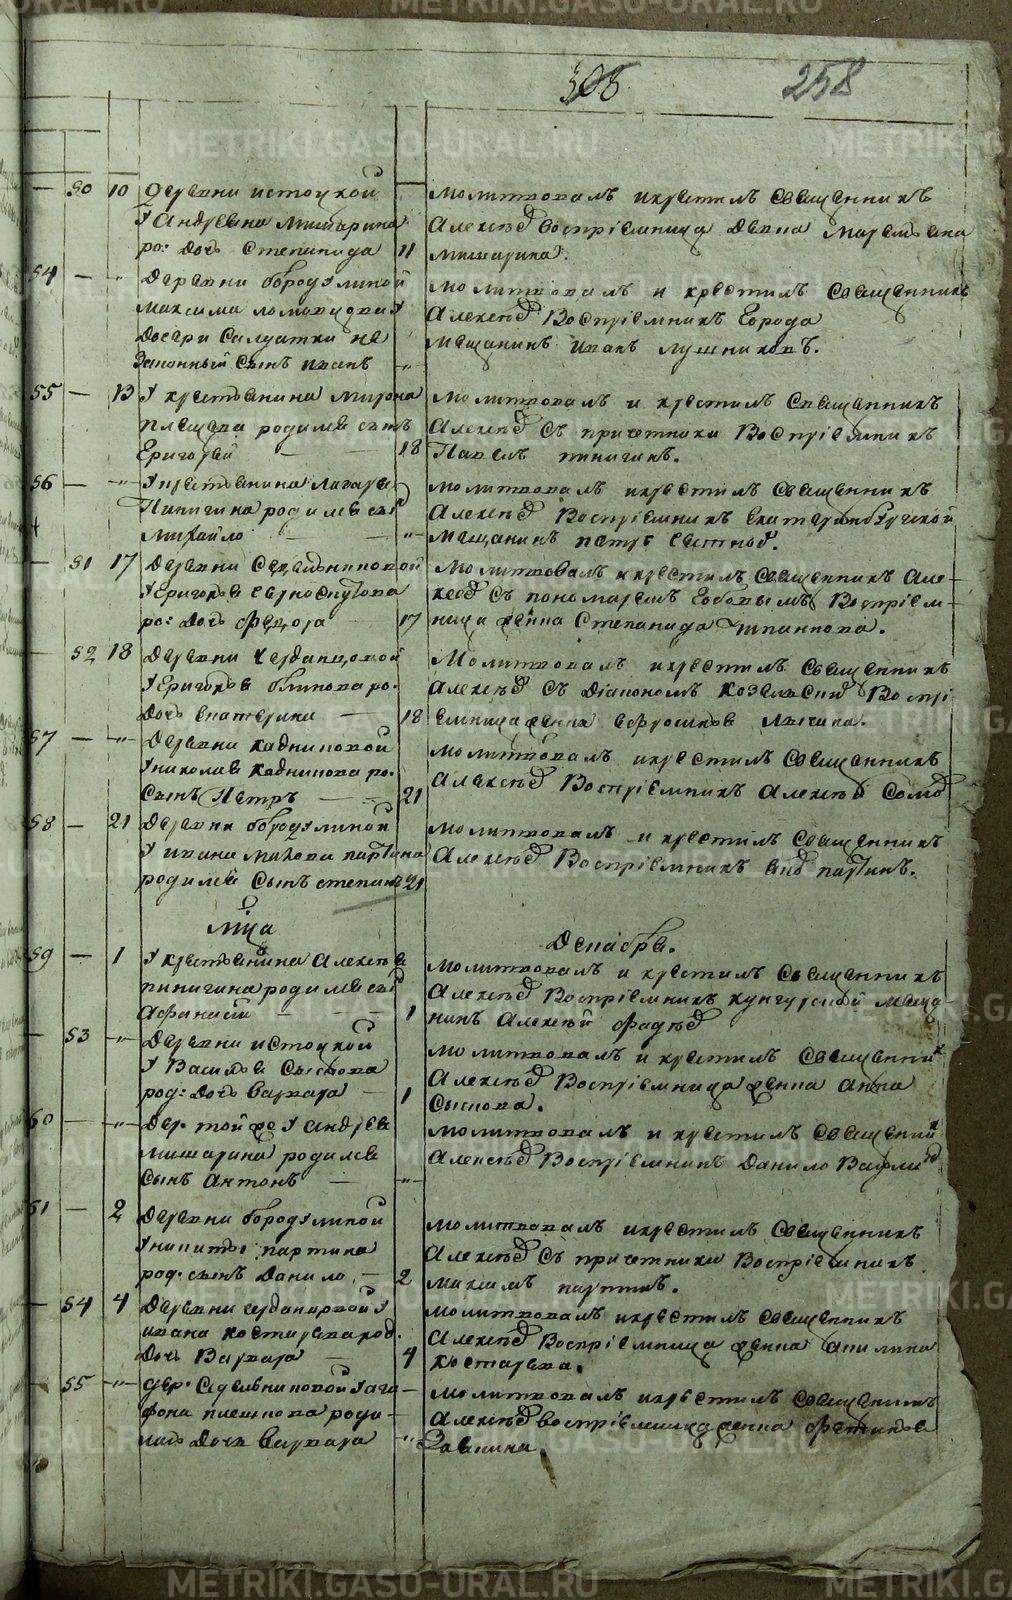 308
258
50 10 Деревни истоцкой
У Андреяна Мишарина
ро: дочь Степанида 11
Молитвовалъ и крестилъ священникъ
Алексѣй восприемница
Мишарина.
54 — " Деревни бородулиной
Максима ломовцова у
дочери Салдатки не
законный сынъ иванъ "
Молитвовалъ и крестилъ священникъ
Алексѣй Восприемникъ Города
мещанинъ иванъ лушниковъ.
55 — 13 У крестьянина Мирона
родился сынъ
Григорий 18
Молитвовалъ и крестилъ священникъ
Алексѣй съ причетники Восприемникъ
Павелъ пинигинъ.
56 — " У крестьянина Лазаря
Пинигина родился сынъ
Михайло "
Молитвовалъ и крестилъ священникъ
Алексѣй Восприемникъ Екатеринбургской
мещанинъ петръ
51 17 Деревни
У Григорья
ро: дочь Федора 17
Молитвовалъ и крестилъ священникъ Але-
ксей съ пономаремъ Восприем-
ница Степанида
52 18 Деревни
У Григорья блинова ро.
дочь Екатерина 18
Молитвовалъ и крестилъ священникъ
Алексѣй съ діакономъ Воспрі
емница
57 — " Деревни кадниковой
У николая кадникова ро.
сынъ Петръ 21
Молитвовалъ и крестилъ священникъ
Алексѣй Восприемникъ Алексѣй
58 — 21 Деревни бородулиной
У ивана партина
родился сынъ степанъ 21
Молитвовалъ и крестилъ священникъ
Алексѣй Восприемникъ партинъ.
Декабря.
59 — 1 У крестьянина Алексѣя
пинигина родился сынъ
Афанасий 1
Молитвовалъ и крестилъ священникъ
Алексѣй Восприемникъ кунгурской меща-
нинъ Алексѣй
53 " Деревни истоцкой
У Василья Сыскова
род: дочь Варвара 1
Молитвовалъ и крестилъ священникъ
Алексѣй Восприемница анна
Сыскова.
60 — " Дер. той же У Андрея
мишарина родился
сынъ антонъ "
Молитвовалъ и крестилъ священникъ
Алексѣй Восприемникъ Данило
61 — 2 Деревни бородулиной
У никиты партина
род. сынъ Данило 2
Молитвовалъ и крестилъ священникъ
Алексѣй съ причетники Восприемникъ
максимъ партинъ.
54 4 Деревни У
ивана костарева род.
дочь Варвара 4
Молитвовалъ и крестилъ священникъ
Алексѣй Восприемница акилина
костарева.
55 " дер. У ага-
фона плешкова роди-
лась дочь Варвара "
Молитвовалъ и крестилъ священникъ
Алексѣй восприемница
METRIKI.GASO-URAL.RU